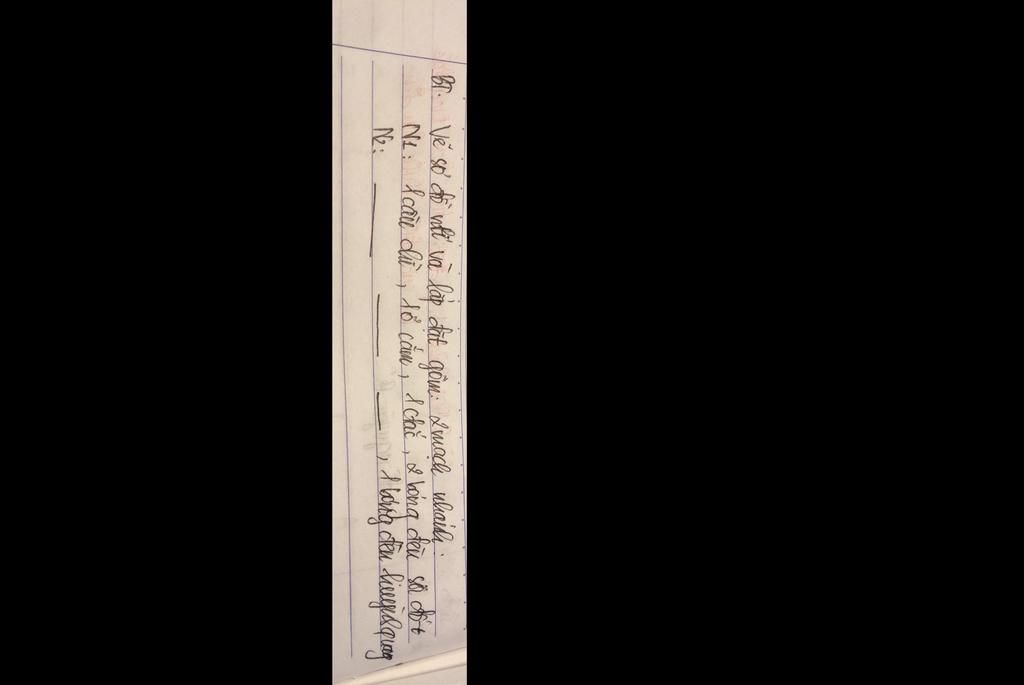 BT. Vẽ sơ đồ nlí và lắp đặt gồm: 2 mạch nhánh.
N1: 1 cầu chì, 1 ổ cắm, 1 ctắc, 2 bóng đèn sợi đốt
N2: ___ ___ ___, 1 bóng đèn huỳnh quang